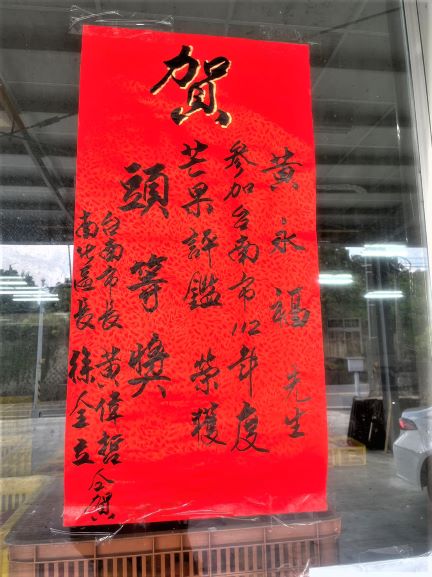 賀
黃永福 先生
參加台南市112年度
芒果評鑑 榮獲
頭等獎
台南市長 黃偉哲
南化區長 徐全立 仝賀